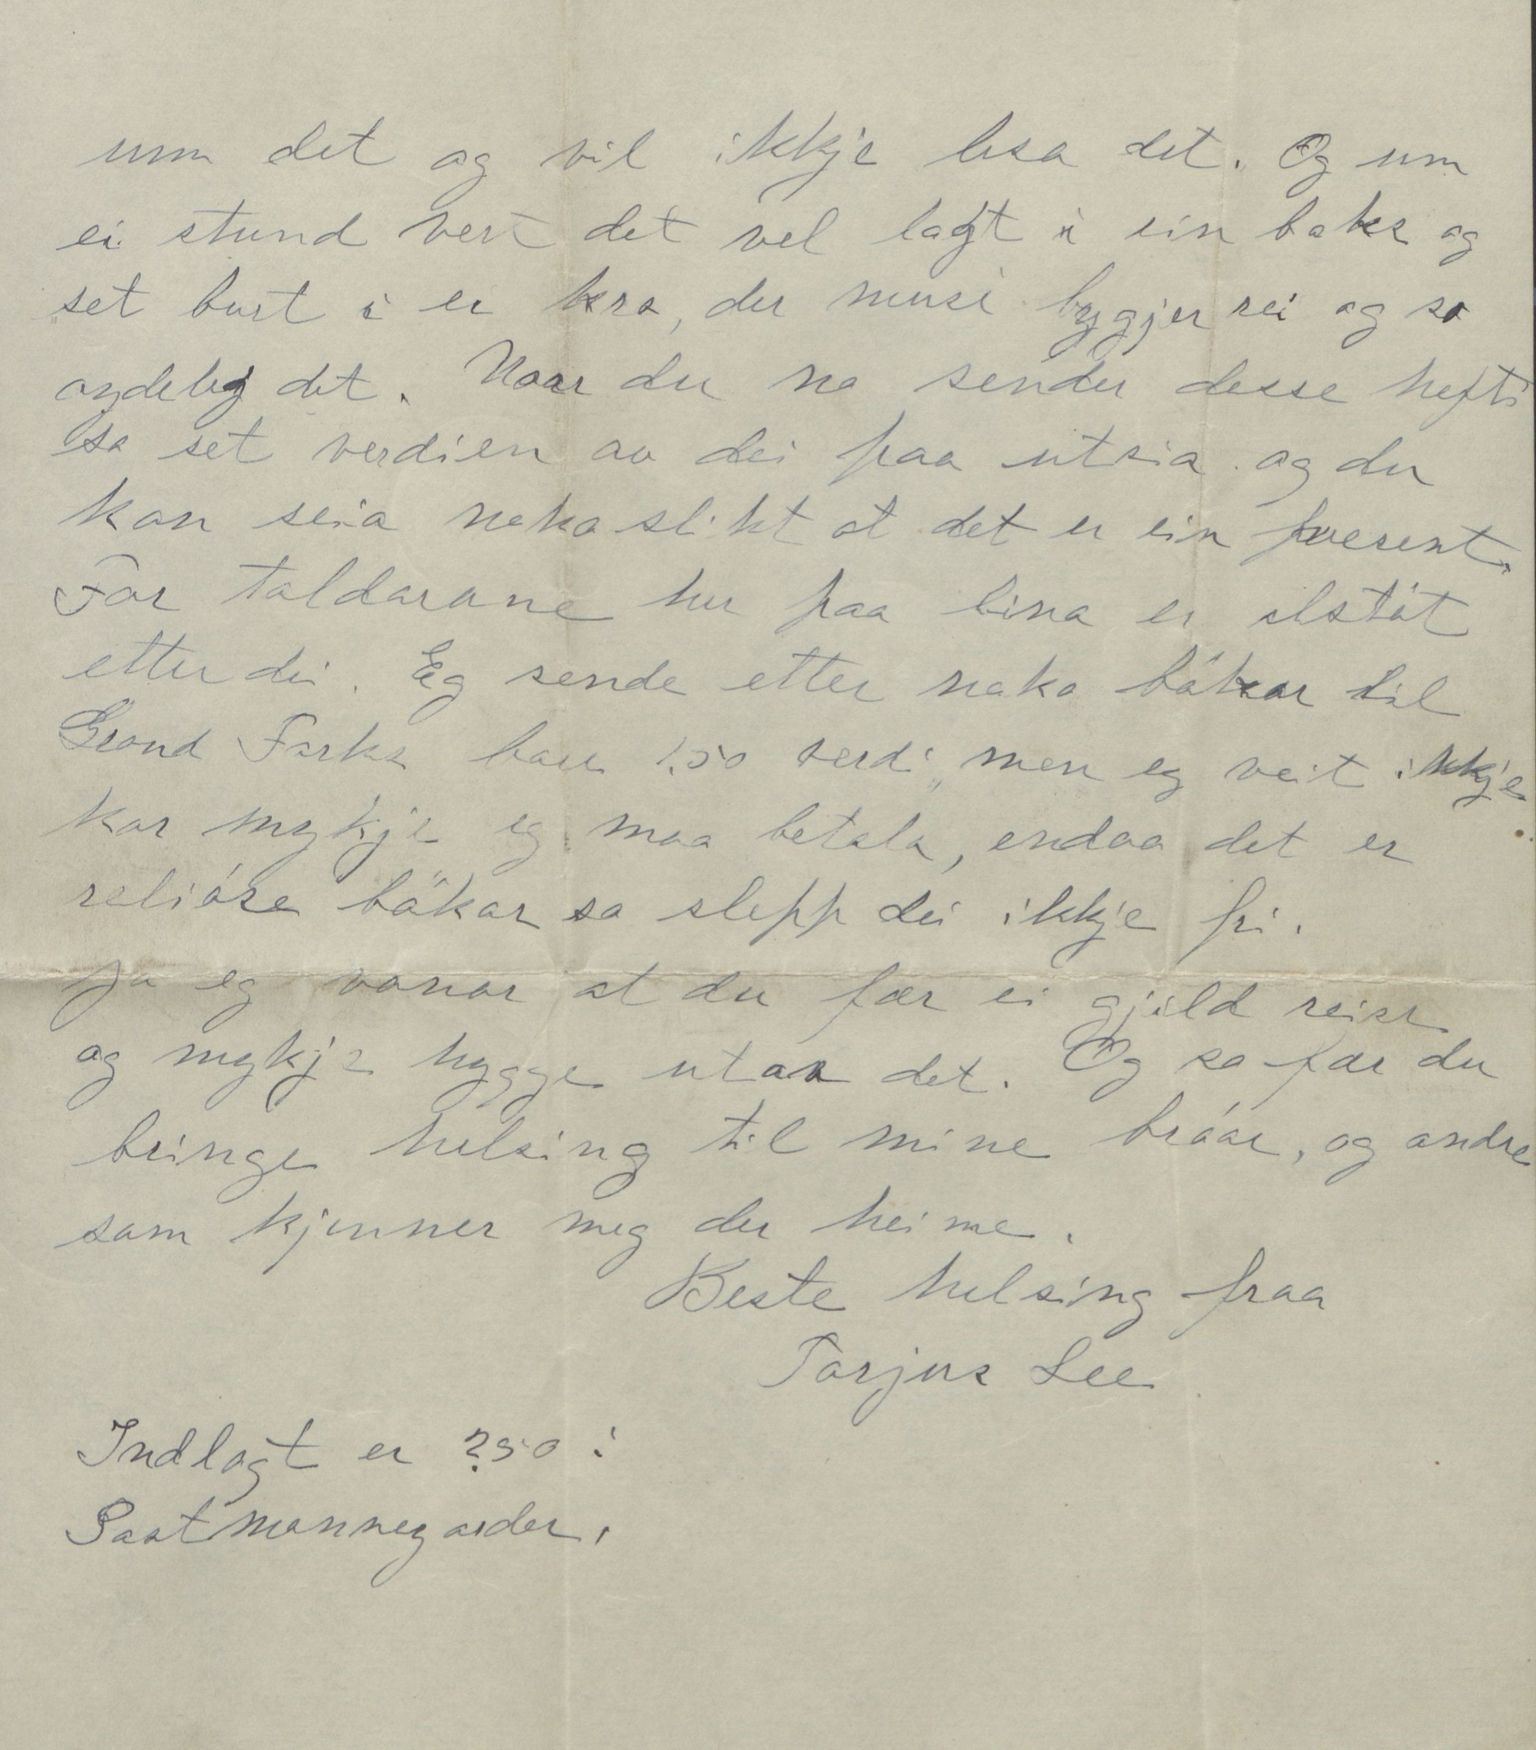 um det og vil ikkje lesa det. Og um
ei stund vert det vel lagt i ein boks og
set burt i ei kro, der musi byggjer rei og so
øydeleg det. Naar du no sender desse hefti
so set verdien av dei paa utsia og du
kan seia noko slikt at det er ein presens.
For toldarane her paa lina er olstöt
etter dei. Eg sende etter noko bökar til
Grand Forks bare 1.50 verdi, men eg veit ikkje
kor mykje eg maa betala, endaa det er
reliöse bökar so slepp dei ikkje fri.
Ja eg vonar at du fær ei gjild reise
og mykje hygge utav det. Og so fær du
bringe helsing til mine bröar, og andre
som kjenner meg der heime.
Beste helsing fraa
Torjus Lee
Indlagt er 2.50 i
Postmonneyorder.